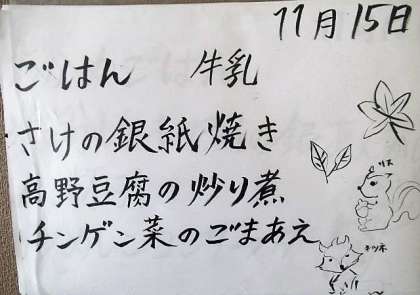 11月15日
ごはん 牛乳
さけの銀紙焼き
高野豆腐の炒り煮
チンゲン菜のごまあえ
リス
キツネ